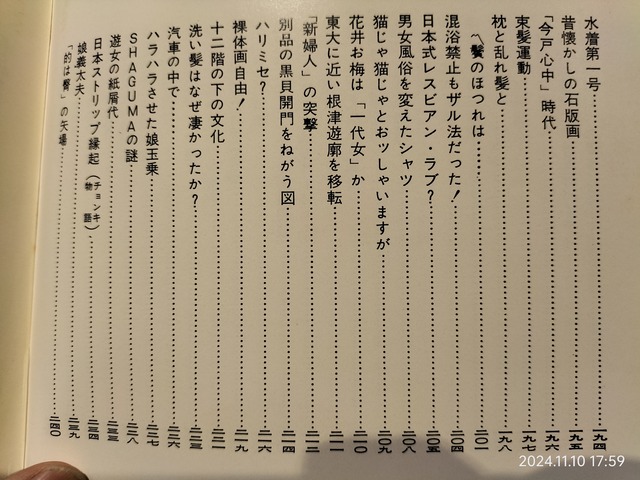 水着第一号…一九四
昔懐かしの石版画…一九五
「今戸心中」時代…一九六
束髪運動…一九七
枕と乱れ髪と…一九八
〽鬢のほつれは…二〇一
混浴禁止もザル法だった！…二〇四
日本式レスビアン・ラブ？…二〇五
男女風俗を変えたシャツ…二〇八
猫じゃ猫じゃとおッしゃいますが…二〇九
花井お梅は「一代女」か…二一〇
東大に近い根津遊廓を移転…二一一
「新婦人」の突撃…二一三
別品の黒貝開門をねがう図…二一四
ハリミセ？…二一六
裸体画自由！…二一九
十二階の下の文化
洗い髪はなぜ凄かったか？
汽車の中で…二二六
ハラハラさせた娘玉乗…二二七
SHAGUMAの謎…二二八
遊女の紙屑代
日本ストリップ縁起（チョンキ物語）…二三四
娘義太夫…二三九
「的は臀」の矢場…二四〇
2024.11.10 17:59